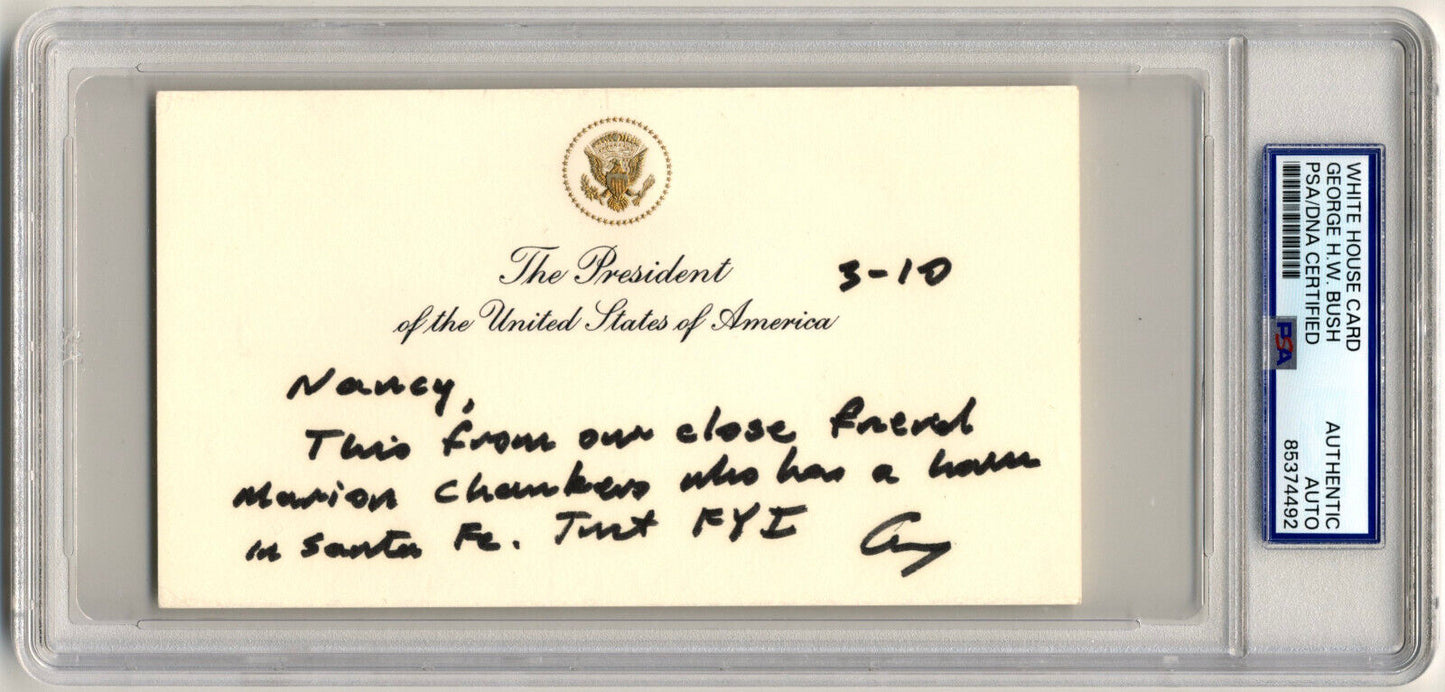 The President
of the United States of America
3-10
Nancy,
This from our close friend
Marion Chambers who has a home
in Santa Fe. Just FYI
WHITE HOUSE CARD
GEORGE H.W. BUSH
PSA/DNA CERTIFIED
AUTHENTIC
AUTO
85374492
PSA